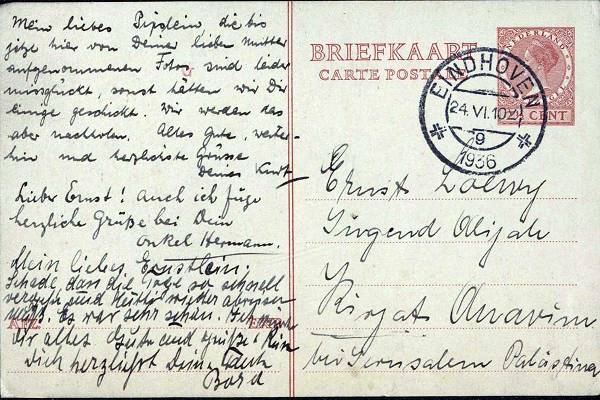 Mein liebes Pipslein, die bis
jetzt hier von Deiner lieben Mutter
aufgenommenen Fotos sind leider
missglückt, sonst hätten wir Dir
einige geschickt. Wir werden das
aber nachholen. Alles Gute, weiter-
hin und herzlichste Grüsse
Deines Kurt
Lieber Ernst! Auch ich füge
herzliche Grüße bei Dein
onkel Hermann.
Mein liebes Ernstlein,
Schade, dass die Tage so schnell
vergehn und Mutti wieder abreisen
muß. Es war sehr schön.
Dir alles Gute und grüße +
Dich herzlichst Deine
BRIEFKAART
CARTE POSTALE
NEDERLAND
CENT
EINDHOVEN
24.VI.10
9
1936
Ernst Loewy
Jugend Alijah
Kirjat Anavim
bei Jerusalem Palästina